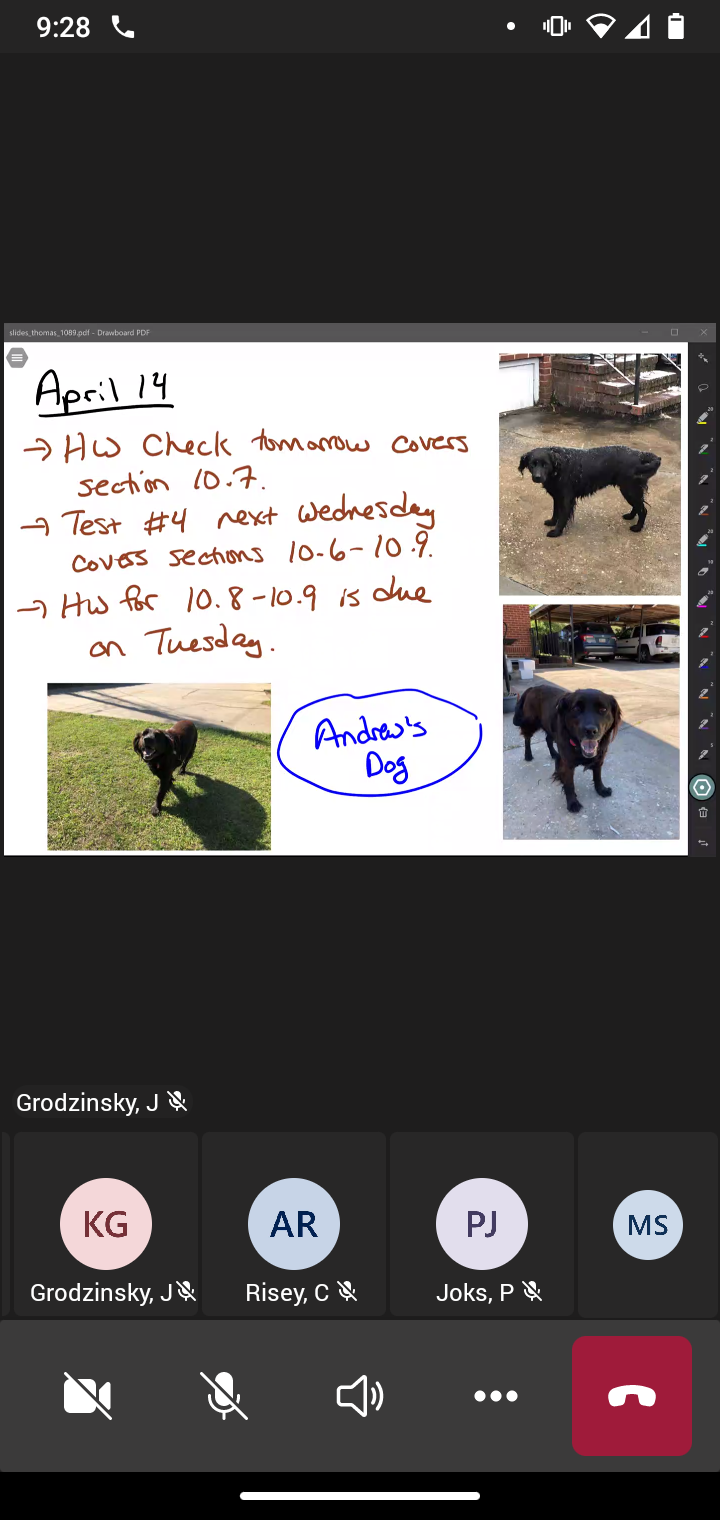 9:28
slides_thomas_1089.pdf - Drawboard PDF
April 14
→ HW Check tomorrow covers
section 10.7.
→ Test #4 next Wednesday
covers sections 10.6-10.9.
→ HW for 10.8-10.9 is due
on Tuesday.
Andrew's
Dog
Grodzinsky, J
KG
AR
PJ
MS
Grodzinsky, J
Risey, C
Joks, P